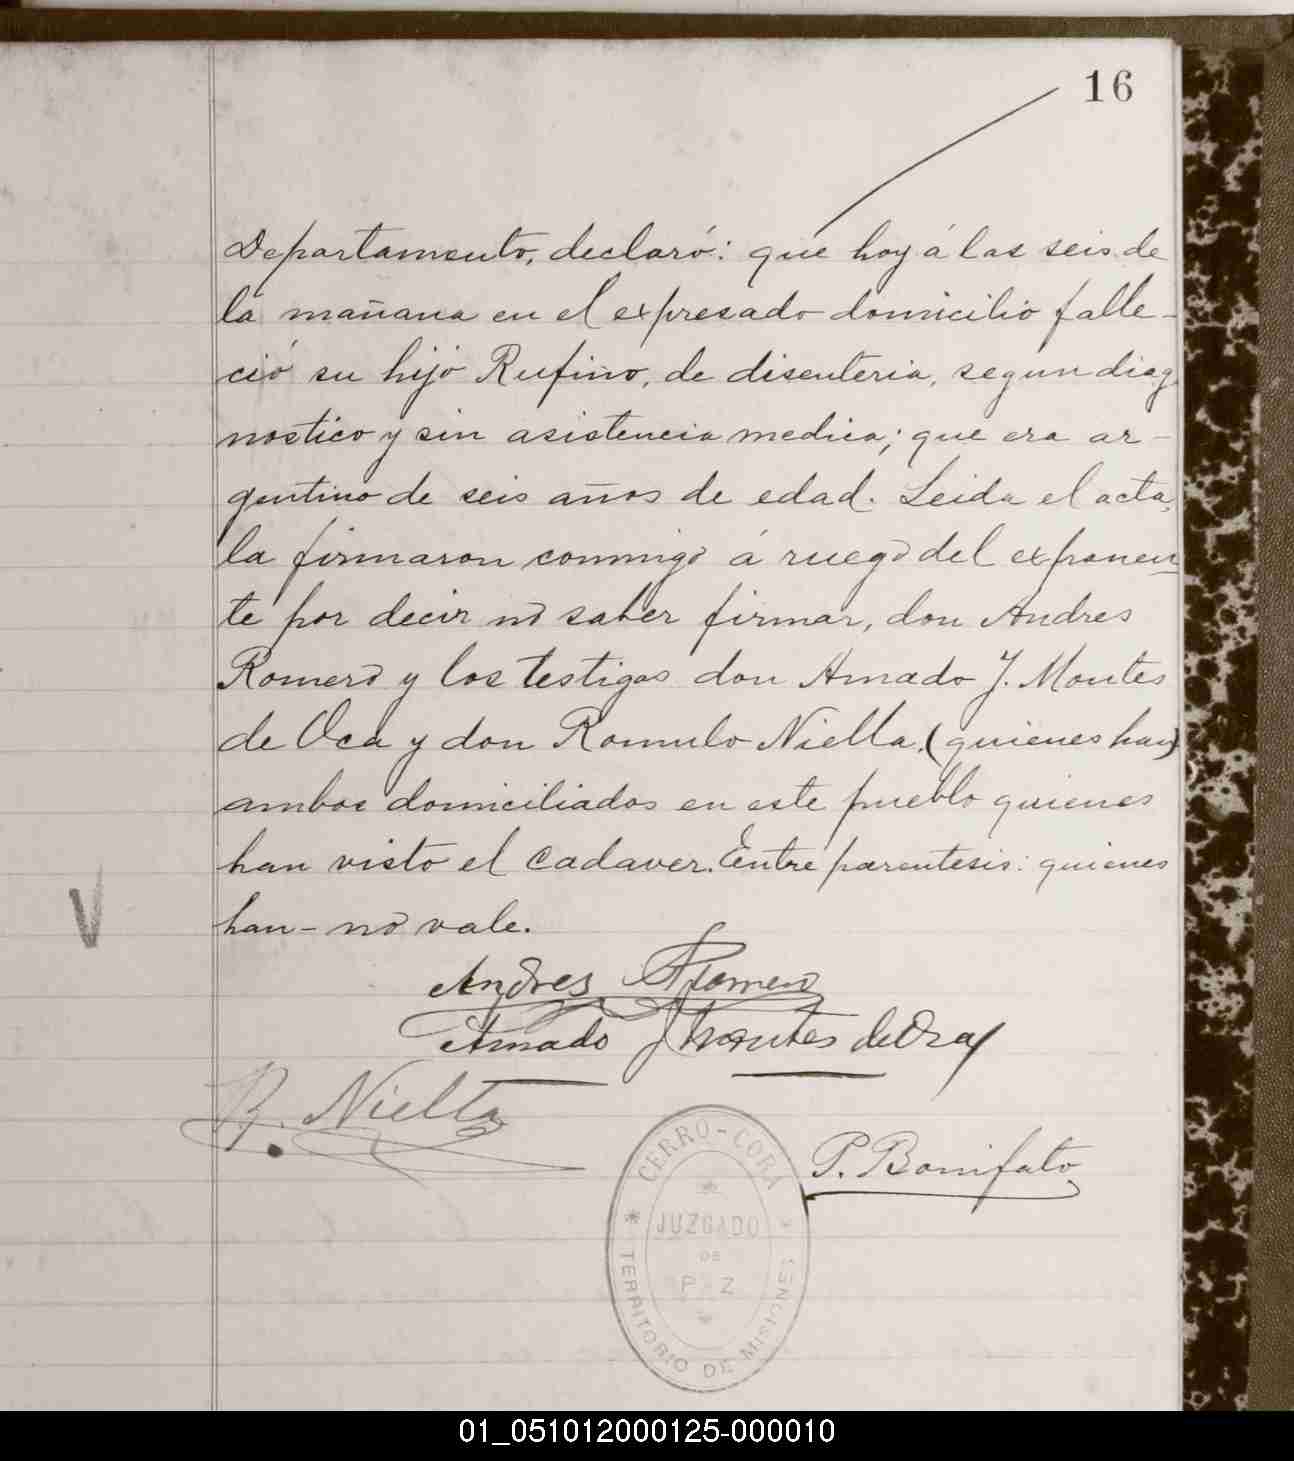 16
Departamento, declaró: que hoy á las seis de
la mañana en el expresado domicilio falle-
ció su hijo Rufino, de disenteria, segun diag
nostico y sin asistencia medica; que era ar-
gentino de seis años de edad. Leida el acta,
la firmaron conmigo á ruego del exponen-
te por decir no saber firmar, don Andres
Romero y los testigos don Amado J. Montes
de Oca y don Romulo Niella, (quienes han)
ambos domiciliados en este pueblo quienes
han visto el cadaver. Entre parentesis: quienes
han - no vale.
Andres Romero
Amado J Montes de Oca
R. Niella
P. Bonifato
CERRO-CORA
JUZGADO
DE
P Z
TERRITORIO DE MISIONES
01_051012000125-000010